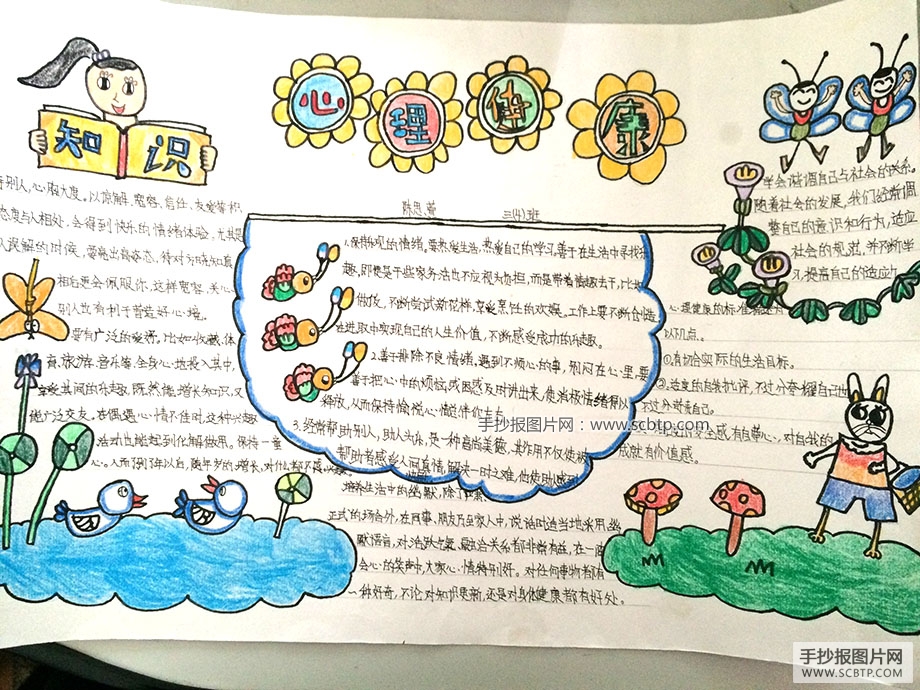 知识
心理健康
陈思蓍
三(4)班
待别人,心胸大度。以谅解、宽容、信任、友爱等积
态度与人相处,会得到快乐的情绪体验。尤其是
人误解的时候,要亮出高姿态,待对方晓知真
相后更会佩服你,这样宽容、关心
别人也有利于营造好心境。
要有广泛的爱好,比如收藏、体
育、旅游、音乐等,全身心地投入其中,
享受其间的乐趣,既然能增长知识,又
能广泛交友。在偶遇心情不佳时,这种兴趣
活动也能起到化解做用。保持一童
心。人而
1.保持乐观的情绪。要热爱生活,热爱自己的学习。善于在生活中寻找乐
趣,即使是干些家务活也不应视为负担,而是带着情趣去干,比如
做饭,不断尝试新花样,享受烹饪的欢娱。工作上要不断创造
在进取中实现自己的人生价值,不断感受成功的乐趣。
2.善于排除不良情绪。遇到不顺心的事,别闷在心里,要
善于把心中的烦恼,或困惑及时讲出来,使消极情绪得以
释放,从而保持愉悦心情
3.经常帮助别人。助人为乐,是一种高尚美德,其作用不仅使被
帮助者感受人间真情,解决一时之难,也使助
培养生活中的幽默,除了
正式的场合外,在同事、朋友乃至家人中,说话时适当地采用幽
默语言,对活跃气氛、融洽关系都非常有益。在一阵
会心的笑声中,大家心情特别好。对任何事物都有
一种好奇,不论对知识更新,还是对身体健康都有好处。
学会谐调自己与社会的关系。
随着社会的发展,我们经常调
整自己的意识和行为,适应
社会的规范,并不断学
习,提高自己的适应力。
心理健康的标准
以下几点。
①有切合实际的生活目标。
②适度的自我批评,不过分夸耀自己也
不过分苛责自己。
安全感,有自尊心,对自我的
成就有价值感。
手抄报图片网:www.scbtp.com
手抄报图片网
SCBTP.COM